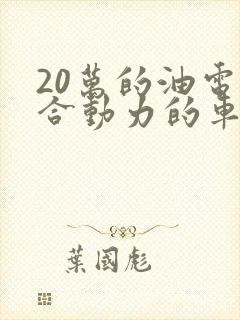 20萬的油電
合動力的車
葉國彪